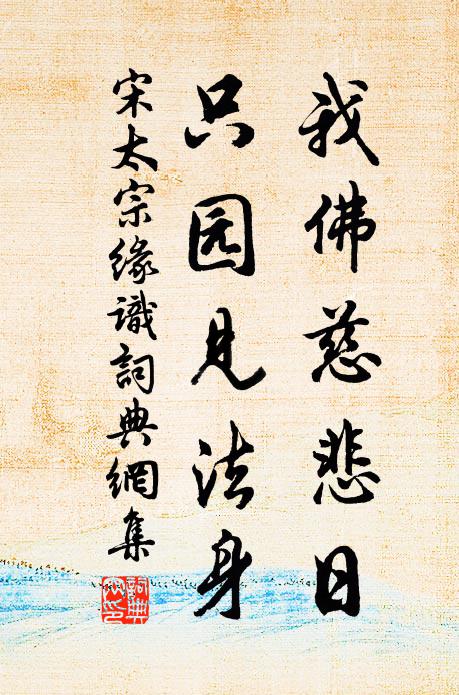 我佛慈悲日
只园见法身
宋太宗缘識詞典網集